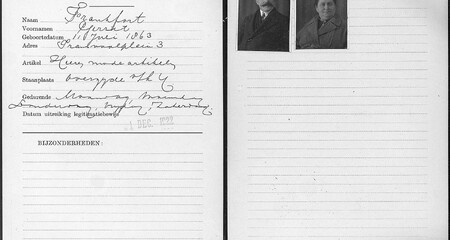 Naam Frankfort
Voornamen Gerrit
Geboortedatum 11 Juni 1863
Adres 3
Artikel Heeren mode artikelen
Staanplaats overzijde
Gedurende Maandag,
Donderdag, Vrijdag, Zaterdag.
Datum uitreiking legitimatiebewijs
DEC. 1922
BIJZONDERHEDEN: